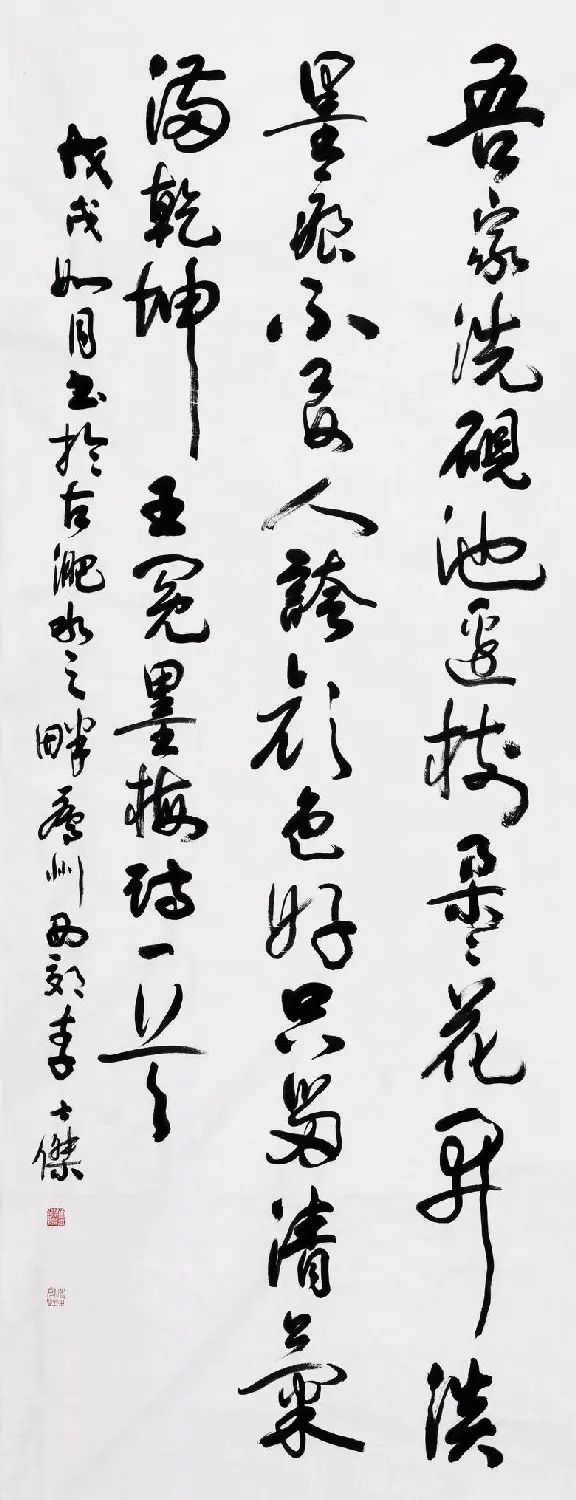 吾家洗硯池邊樹朵々花開淡
墨痕不要人誇顏色好只留清氣
滿乾坤 王冕墨梅詩一首
戊戌如月書於古淝水之畔廬州西郊李士傑